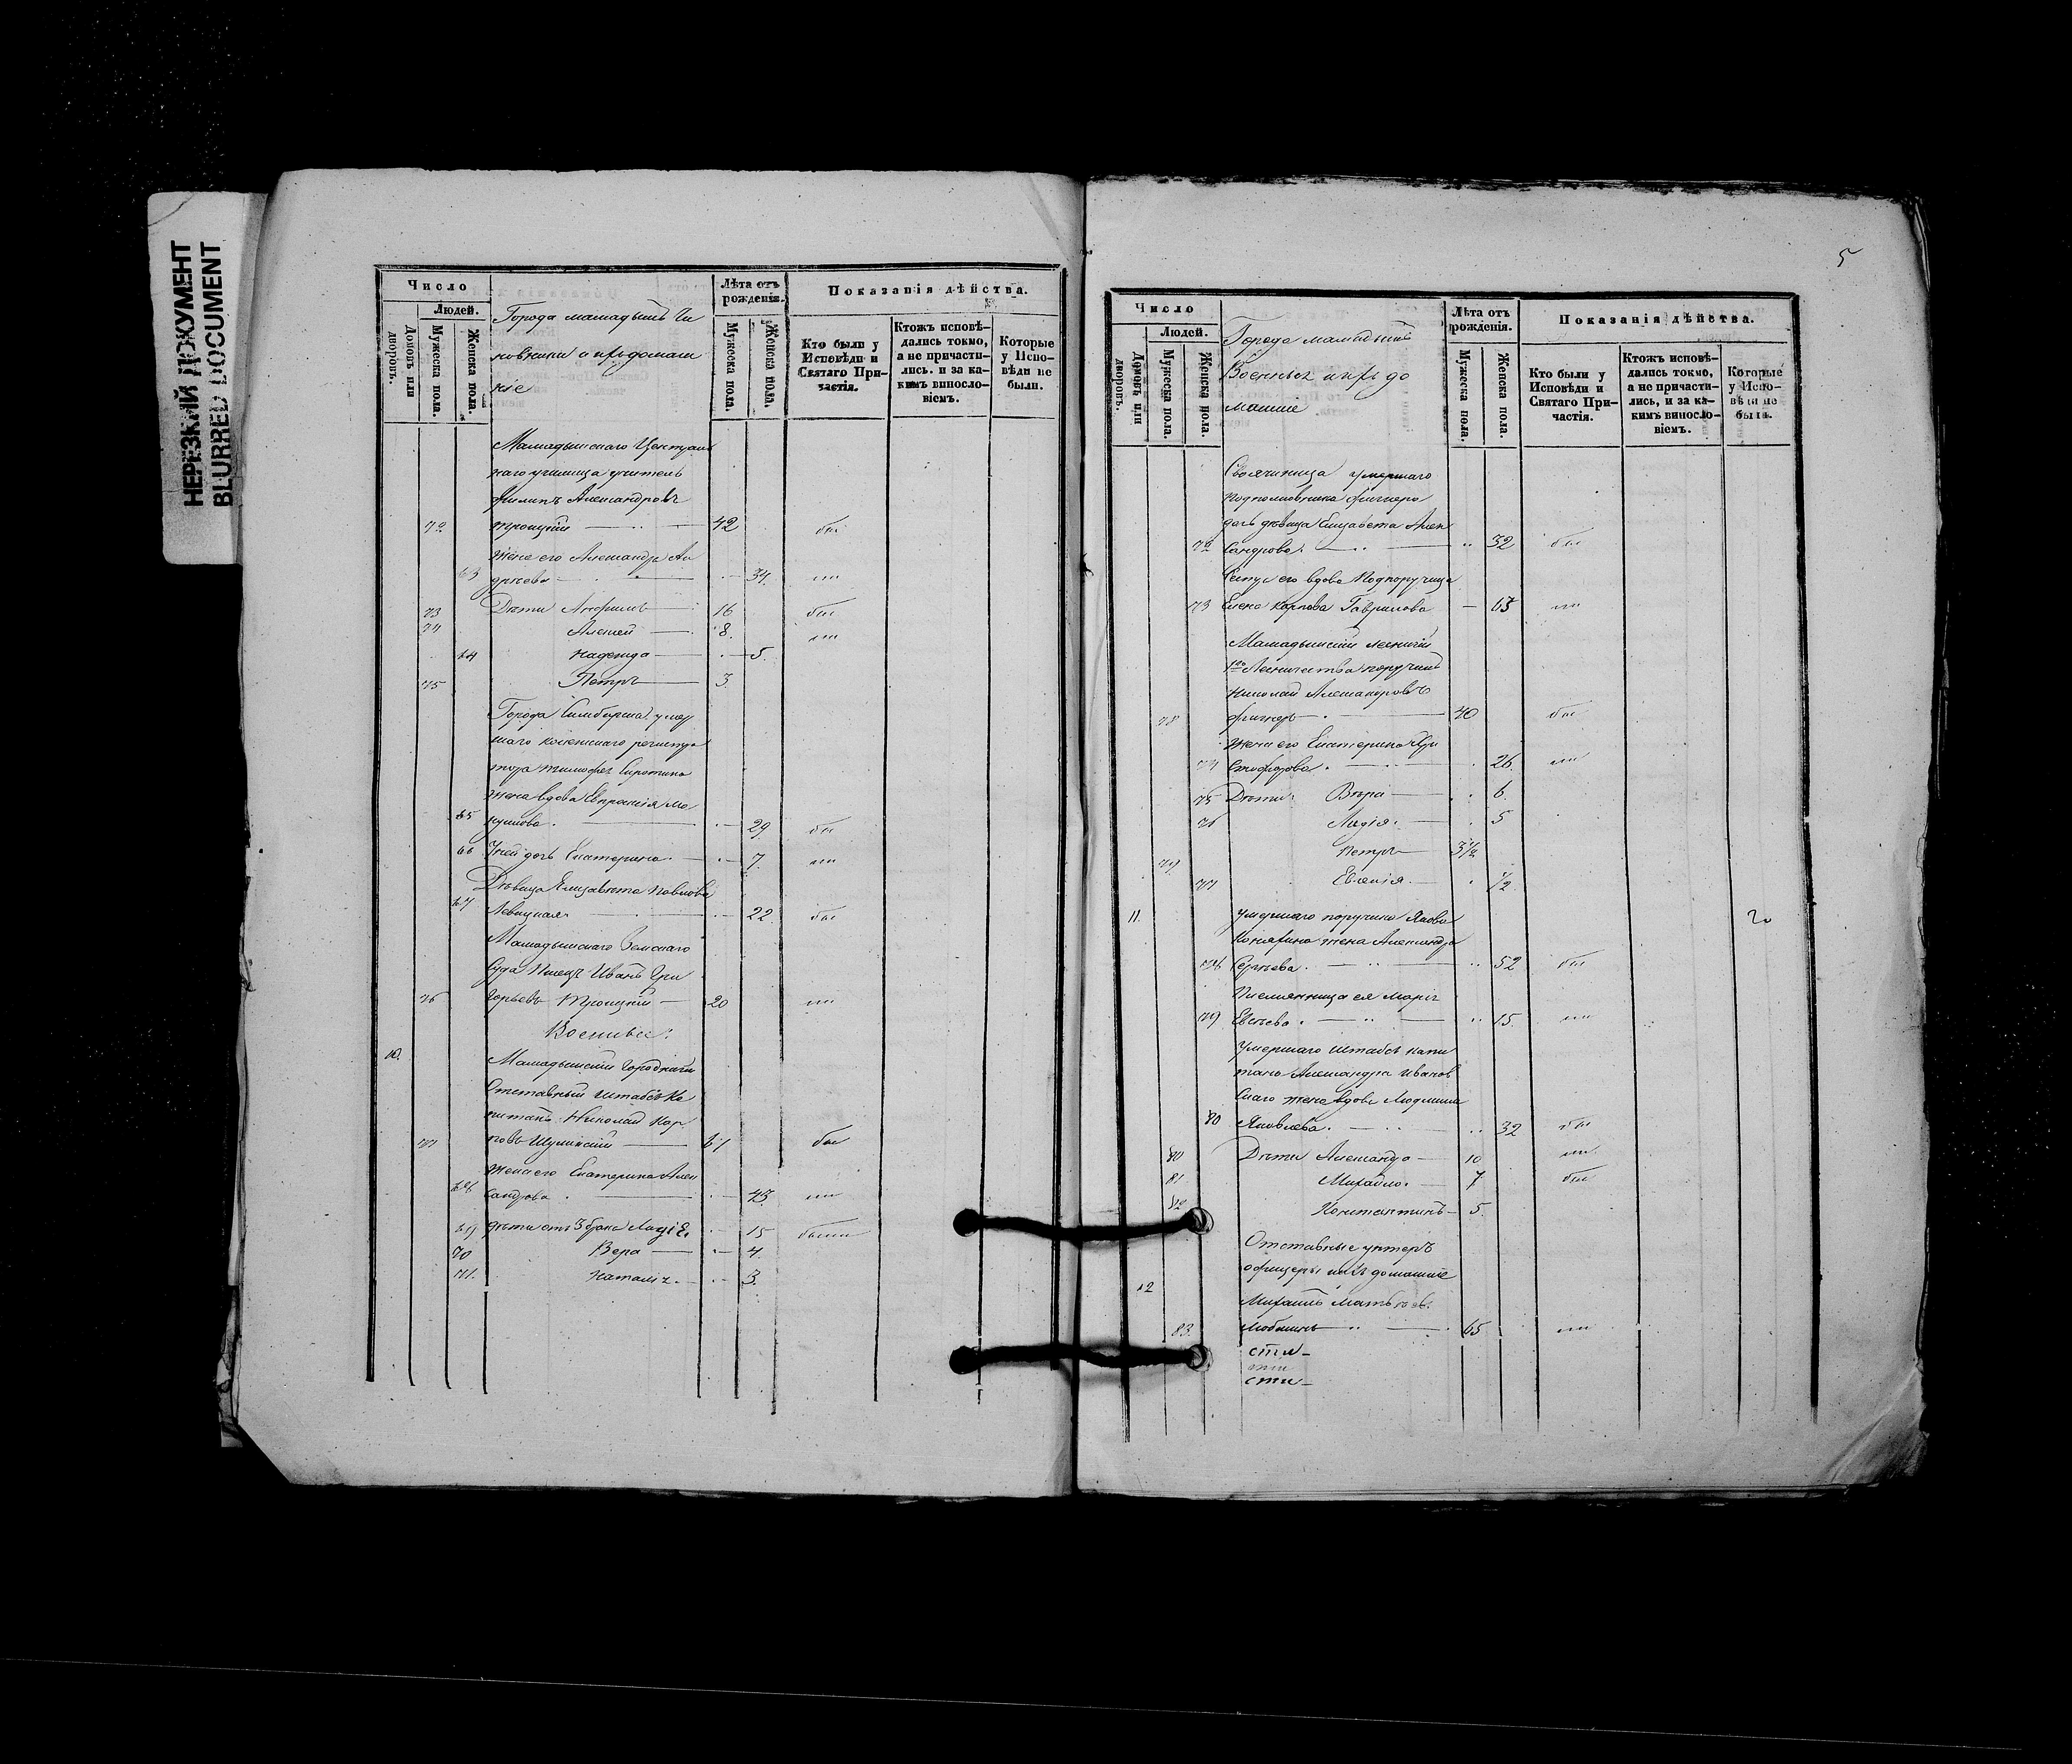 НЕРЕЗКИЙ ДОКУМЕНТ
BLURRED DOCUMENT
Число
Людей.
Домовъ или дворовъ.
Мужеска пола.
Женска пола.
Города Мамадышъ Чи
новники и ихъ домаш
ніе
Лѣта отъ рожденія.
Мужеска пола.
Женска пола.
Показанія дѣйства.
Кто были у Исповѣди и Святаго Причастія.
Ктожъ исповѣдались токмо, а не причастились. и за какимъ винословіемъ.
Которые у Исповѣди не были.
Мамадышскаго
наго училища учитель
Филипъ Александровъ
72 Троицкій 42 был
Жена его Александра Ан
63 дреева 34
73 Дѣти 16 был
74 Алексей 8.
64 Надежда 5.
75 Петръ 3
Города Симбирска умер
шаго колежскаго регистра
тора Тимофея Сиротина
жена вдова
65 29 был
66 У ней дочь Екатерина 7.
Дѣвица Елизавета Павлова
67 Левицкая 22 был
Мамадышскаго Земскаго
Суда Писецъ Иванъ Гри
76 горьевъ Троицкій 20
Военные:
10. Мамадышский Городничий
Отставный Штабсъ Ка
питанъ Николай Кар
77 повъ 61 был
Жена его Екатерина Алек
68 сандрова 43
69 дѣти отъ 3 брака Лидія 15 были
70 Вера 4.
71. Наталія 3.
5
Число
Людей.
Домовъ или дворовъ.
Мужеска пола.
Женска пола.
Города Мамадышъ
Военные и ихъ до
машніе
Лѣта отъ рожденія.
Мужеска пола.
Женска пола.
Показанія дѣйства.
Кто были у Исповѣди и Святаго Причастія.
Ктожъ исповѣдались токмо, а не причастились, и за какимъ винословіемъ.
Которые у Исповѣди не были.
Своячиница умершаго
подполковника Фигнера
дочь дѣвица Елизавета Алек
72 сандрова 32 был
его вдова Подпоручица
73 Елена Карпова Гаврилова 63
Мамадышскій лесничій
1го Лесничества поручикъ
Николай Александровъ
78 Фигнеръ 40 был
Жена его Екатерина Хри
74 стофорова 26.
75 Дѣти: Вѣра 6.
76 Лидія 5
79 Петръ 3 1/2
77 Евгенія 1/2
11. Умершаго поручика Якова
жена Александра
78 Сергѣева 52 был
Племянница ея Марія
79 Евсѣева 15.
Умершаго штабсъ капи
тана Александра Иванов
скаго жена вдова Людмила
80 Яковлева 32 был
80 Дѣти Александръ 10
81 Михайло 7 был
82 Константинъ 5.
Отставные унтеръ
офицеры и ихъ домашніе
12 Михаилъ Матвѣевъ
83. 65